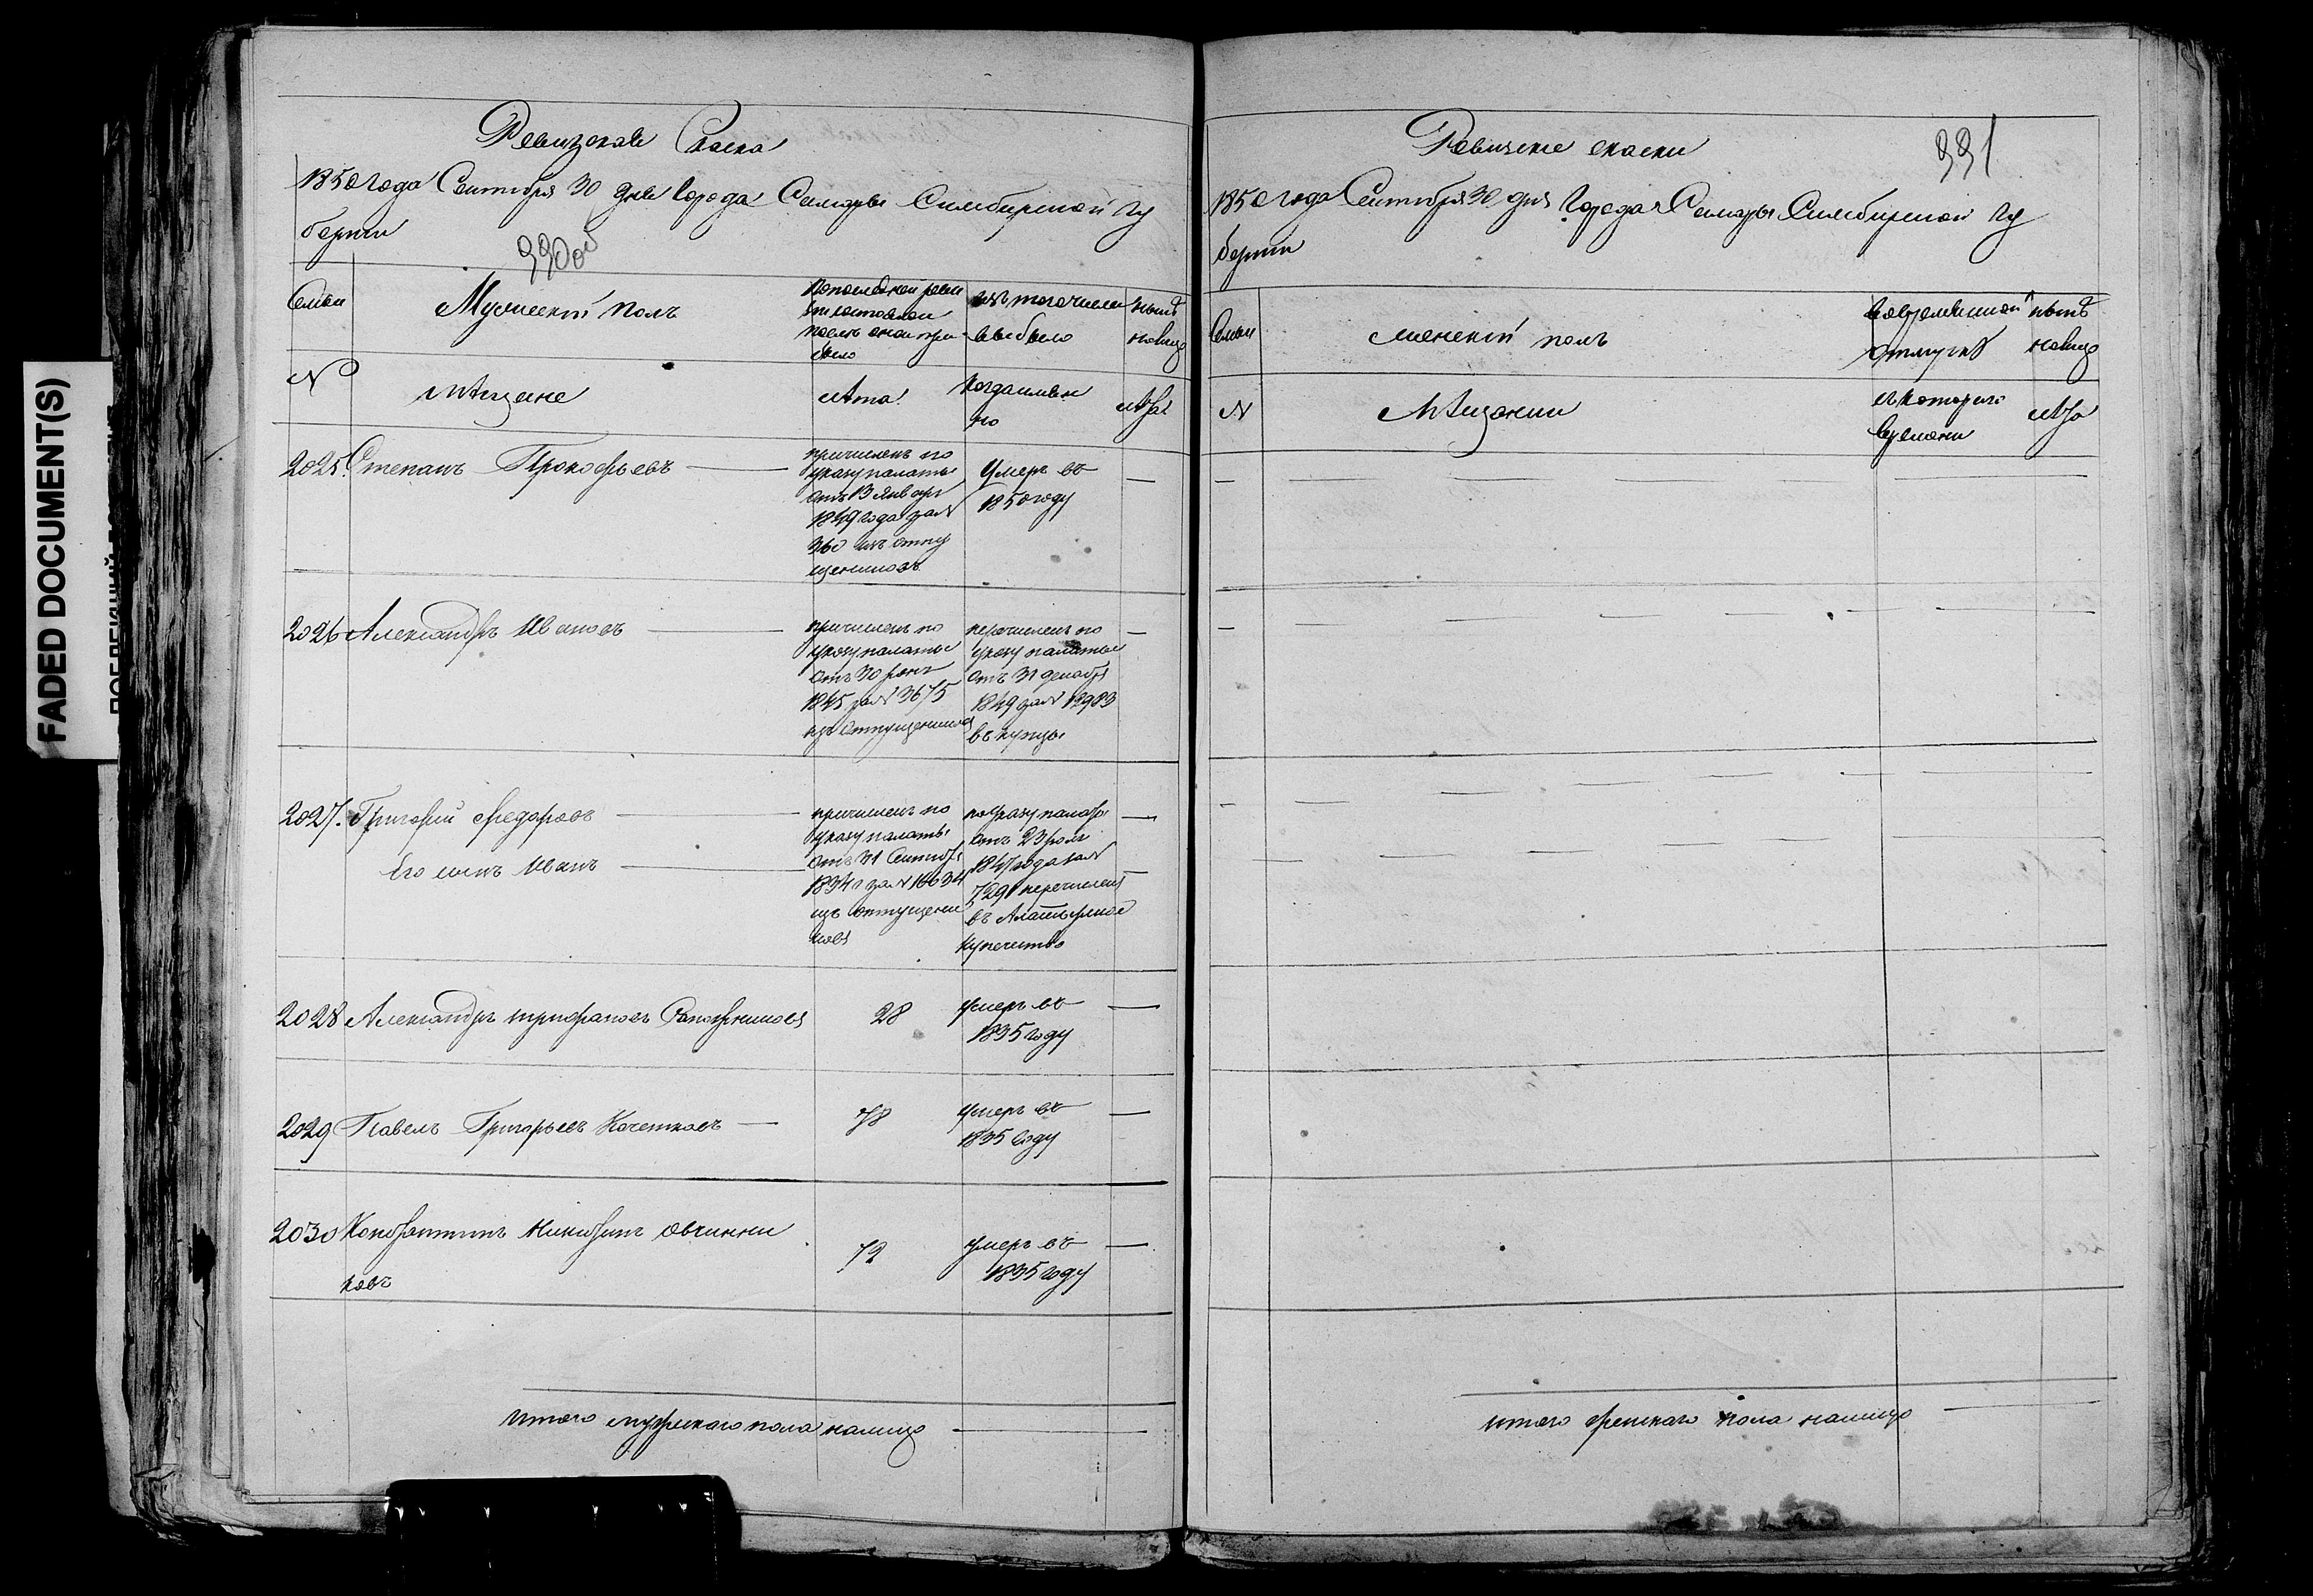 FADED DOCUMENT(S)
Ревизская Скаска
1850 года Сентября 30 дня Города Самары Симбирской гу
бернии
330 об
Семьи
Мужеской полъ
По последней реви
зiи состояло и
после оной при
было
изъ того числа
выбыло
ныне
на лицо
№
мѣщане
лѣта
когда имен
но
лѣта
2025. Степанъ Прокофьевъ
причисленъ по
указу палаты
отъ 13 Января
1849 года за №
360 изъ отпу
щениковъ
Умеръ въ
1850 году
2026 Александръ Ивановъ
причисленъ по
указу палаты
отъ 30
1845 за № 3675
изъ отпущениковъ
перечисленъ по
указу палаты
отъ 31 декабря
1849 за № 13983
въ купцы
2027. Григорий Федоровъ
Его сынъ Иванъ
причисленъ по
указу палаты
отъ 31 Сентября
1834 за № 16634
изъ отпущени
ковъ
по указу палаты
отъ 23
1847 года за №
7291 перечисленъ
въ Алатырское
купечество
2028 Александръ Трифоновъ Сапожниковъ
28
умеръ въ
1835 году
2029 Павелъ Григорьевъ Кочетковъ
78
умеръ въ
1835 году
2030 Константинъ Никитинъ Овчинни
ковъ
72
умеръ въ
1835 году
итого мужескаго пола налицо
Ревизские скаски
331
1850 года Сентября 30 дня Города Самары Симбирской гу
бернии
Семьи
женский полъ
во временной
отлучкѣ
нынѣ
налицо
№
мѣщанки
съ котораго
времени
лѣта
итого женскаго пола налицо